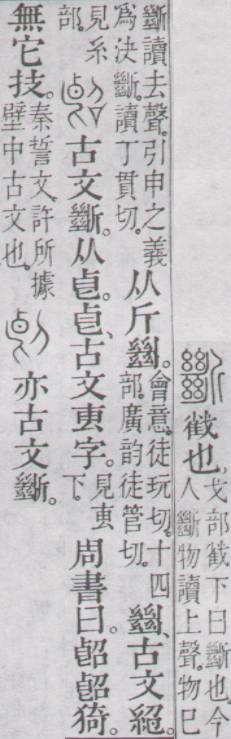 𢧵也。
戈部𢧵下曰斷也。今
人斷物讀上聲。物已
斷讀去聲。引申之義
爲決斷。讀丁貫切。
从斤𢇍。
會意。徒玩切。十四
部。廣韵徒管切。
𢇍、古文絕。
見糸
部。
古文斷。从𠧢。𠧢、古文叀字。
見叀
下。
周書曰。𠸿𠸿猗。
無它技。
秦誓文。許所據
壁中古文也。
亦古文斷。